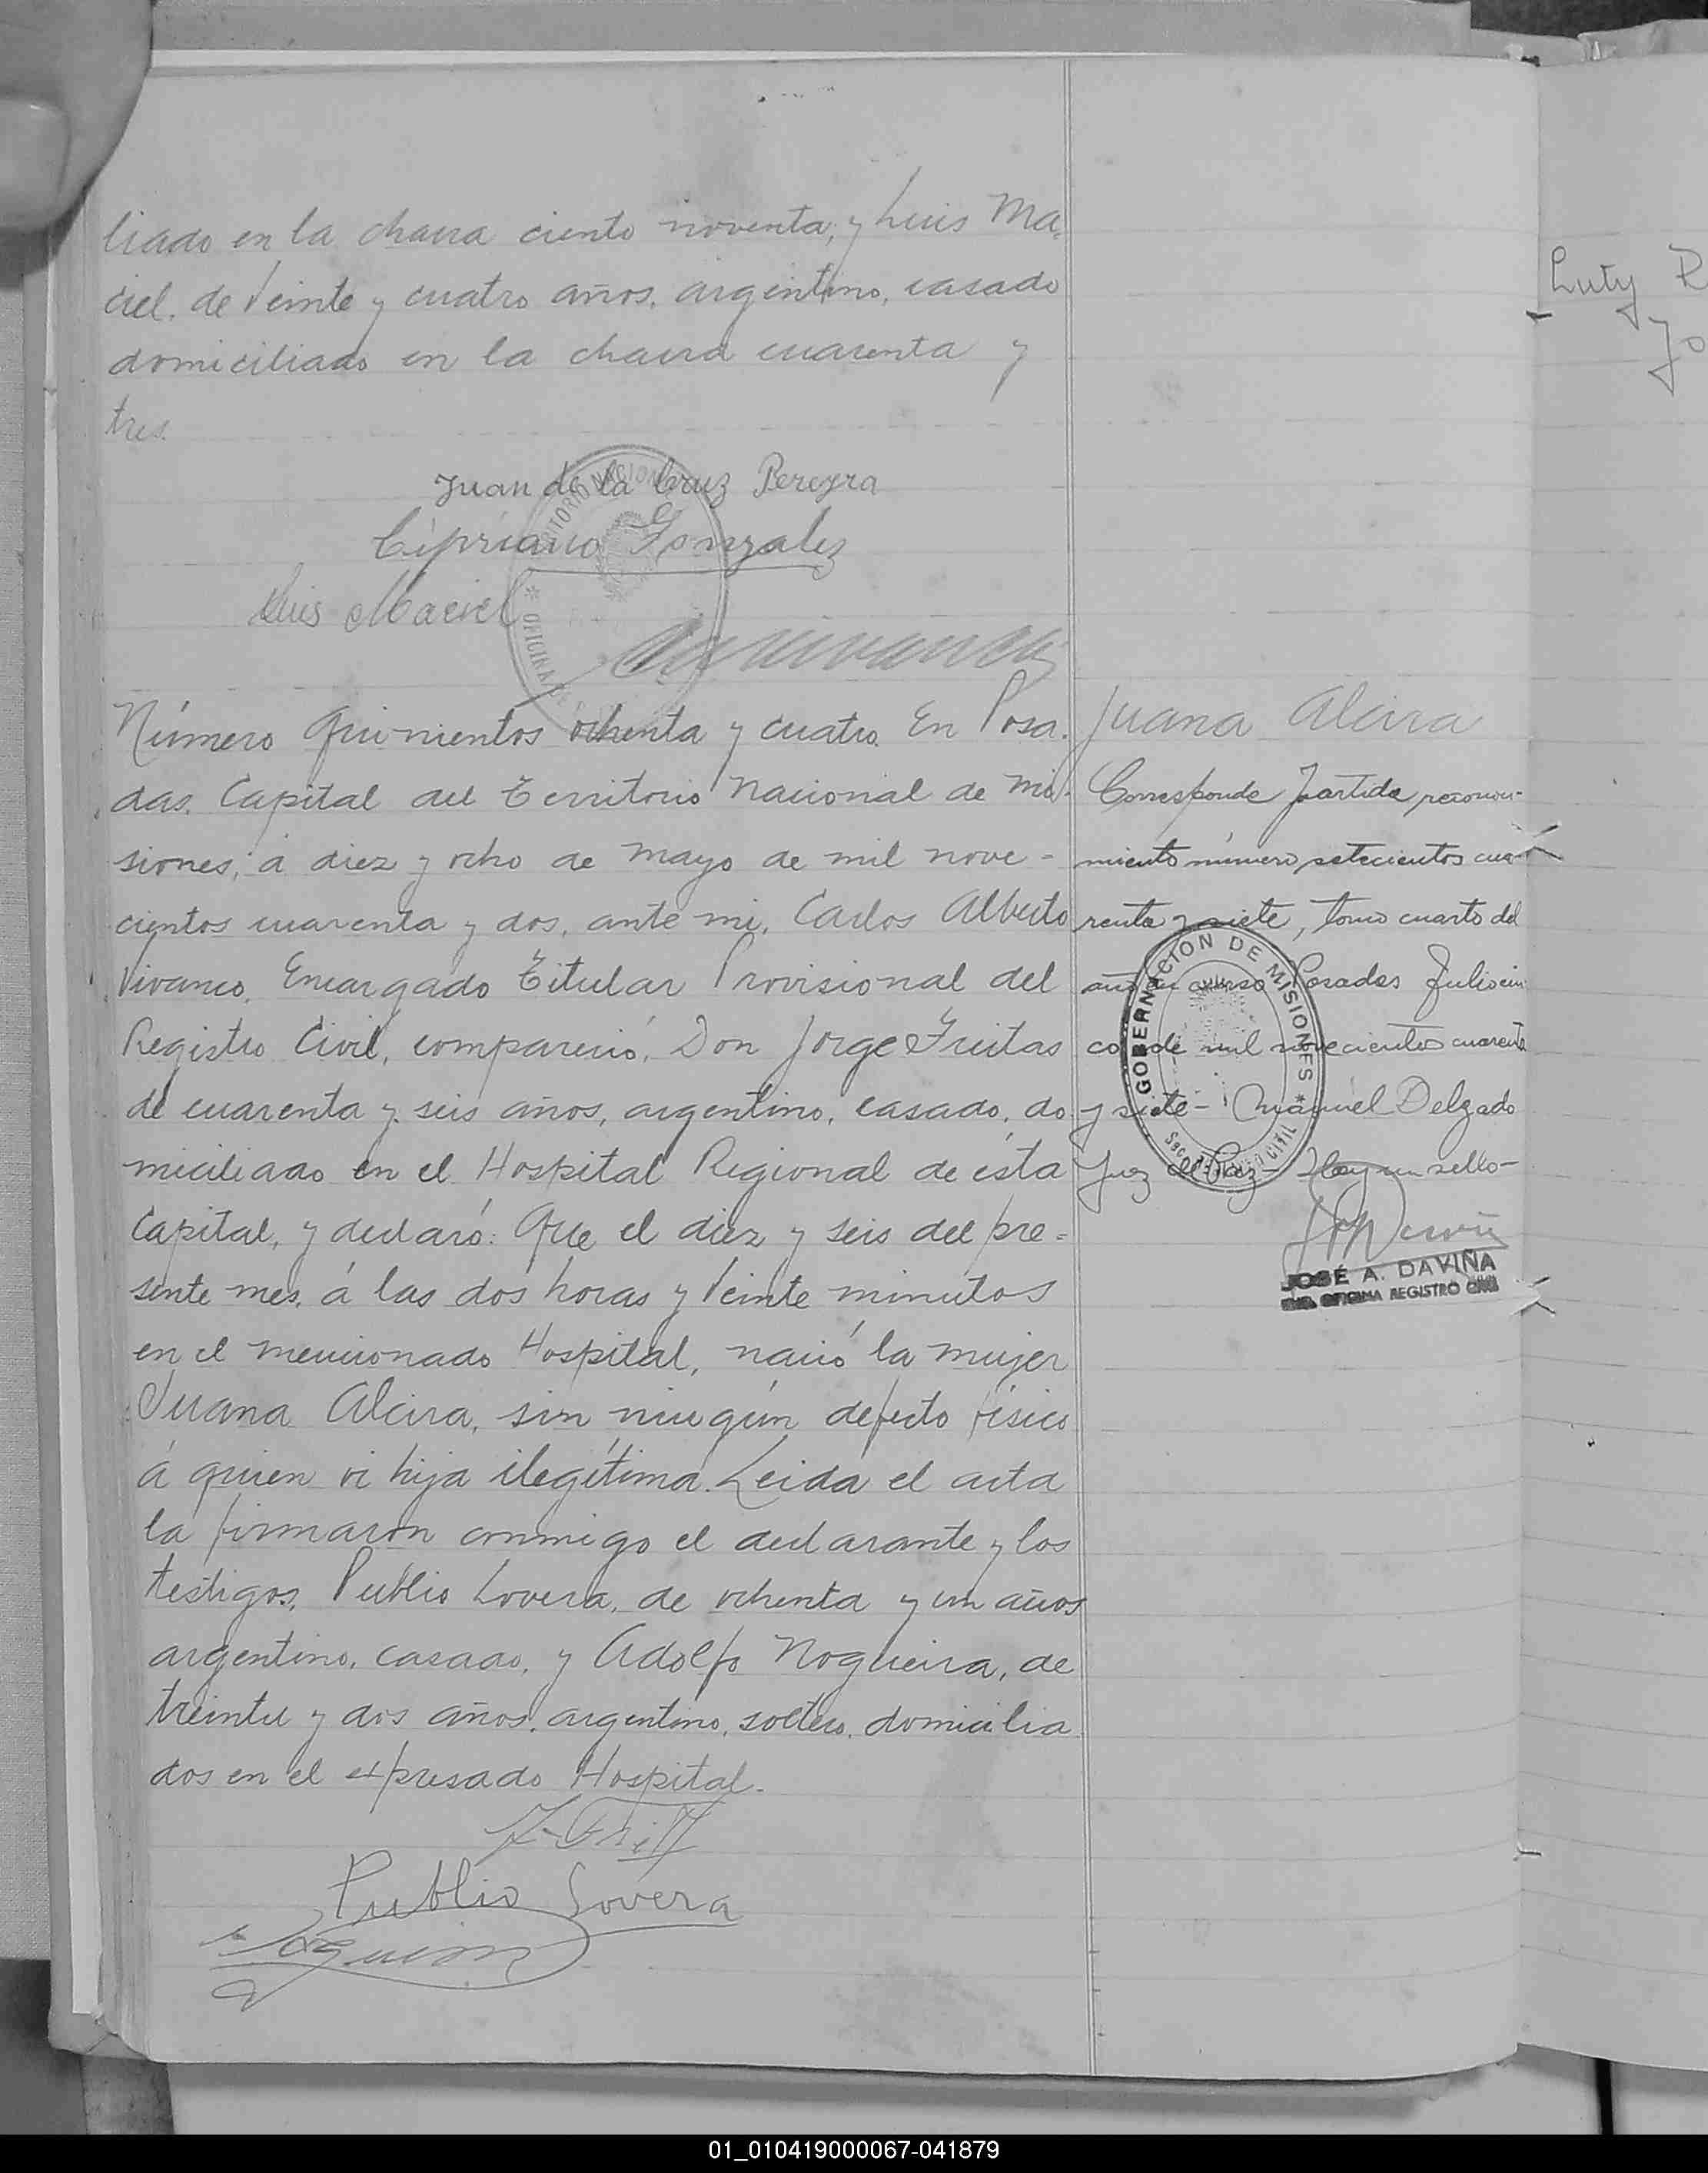 liado en la chacra ciento noventa, y Luis Ma,
ciel. de Veinte y cuatro años, argentino, casado
domiciliado en la chacra cuarenta y
tres.
Juan de la Cruz Pereyra
Cipriano Gonzalez
Luis Maciel
Número Quinientos ochenta y cuatro. En Posa.
das. Capital del Territorio Nacional de Mi.
siones, á diez y ocho de Mayo de mil nove-
cientos cuarenta y dos, ante mi, Carlos Alberto
Vivanco, Encargado Titular Provisional del
Registro Civil, compareció, Don Jorge Freitas
de cuarenta y seis años, argentino, casado, do
miciliado en el Hospital Regional de ésta
Capital, y declaró: Que el diez y seis del pre=
sente mes, á las dos horas y Veinte minutos
en el mencionado Hospital, nació la mujer
Juana Alcira, sin ningún defecto físico
á quien vi hija ilegítima. Leida el acta
la firmaron conmigo el declarante y los
testigos, Publio Lovera, de ochenta y un años
argentino, casado, y Adolfo Nogueira, de
treinta y dos años, argentino, soltero, domicilia
dos en el expresado Hospital.
Publio Lovera
Juana Alcira
Corresponde Partida reconoci-
miento número setecientos cua-
renta y siete, tomo cuarto del
año en curso Posadas Julio cin
co de mil novecientos cuarenta
y siete - Manuel Delgado
Juez de Paz - Hay un sello -
GOBERNACION DE MISIONES
JOSÉ A. DAVIÑA
ENC. OFICINA REGISTRO CIVIL
Luty R
Jo
01_010419000067-041879